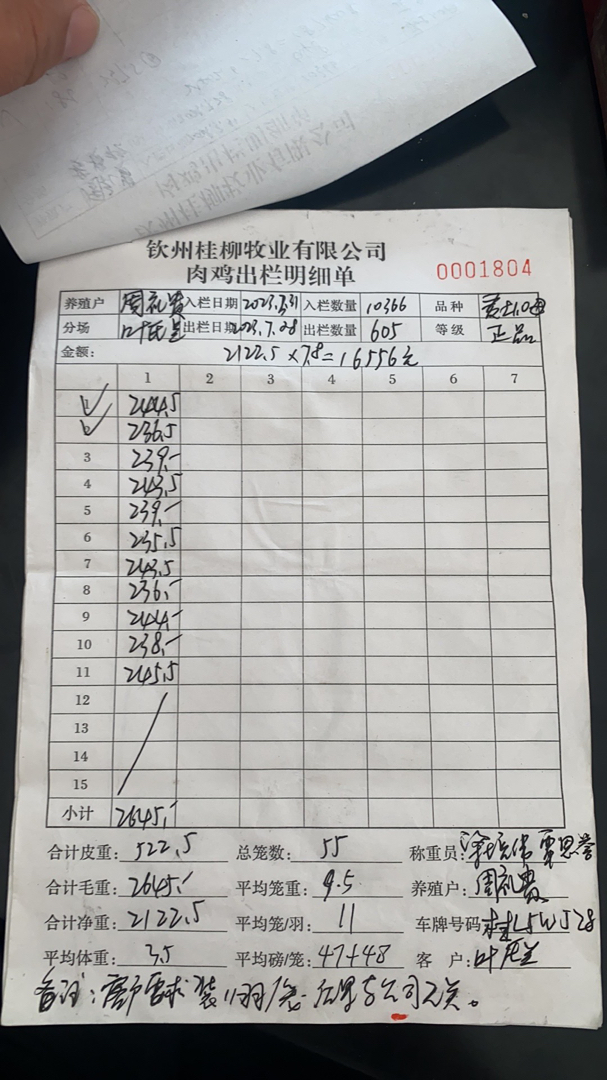 钦州桂柳牧业有限公司
肉鸡出栏明细单
0001804
养殖户 周礼贵 入栏日期 2023.3.31 入栏数量 10366 品种
分场 出栏日期 2023.7.28 出栏数量 605 等级 正品
金额: 2122.5×7.8=16556元
1 2 3 4 5 6 7
1 244.5
2 236.5
3 239.-
4 243.5
5 239.-
6 235.5
7 243.5
8 236.-
9 244.-
10 238.-
11 245.5
12
13
14
15
小计 2645.-
合计皮重: 522.5 总笼数: 55 称重员:
合计毛重: 2645.- 平均笼重: 9.5 养殖户: 周礼贵
合计净重: 2122.5 平均笼/羽: 11 车牌号码
平均体重: 3.5 平均磅/笼: 47+48 客户:
备注: 客户需求装11羽/笼. 后果与公司无关。